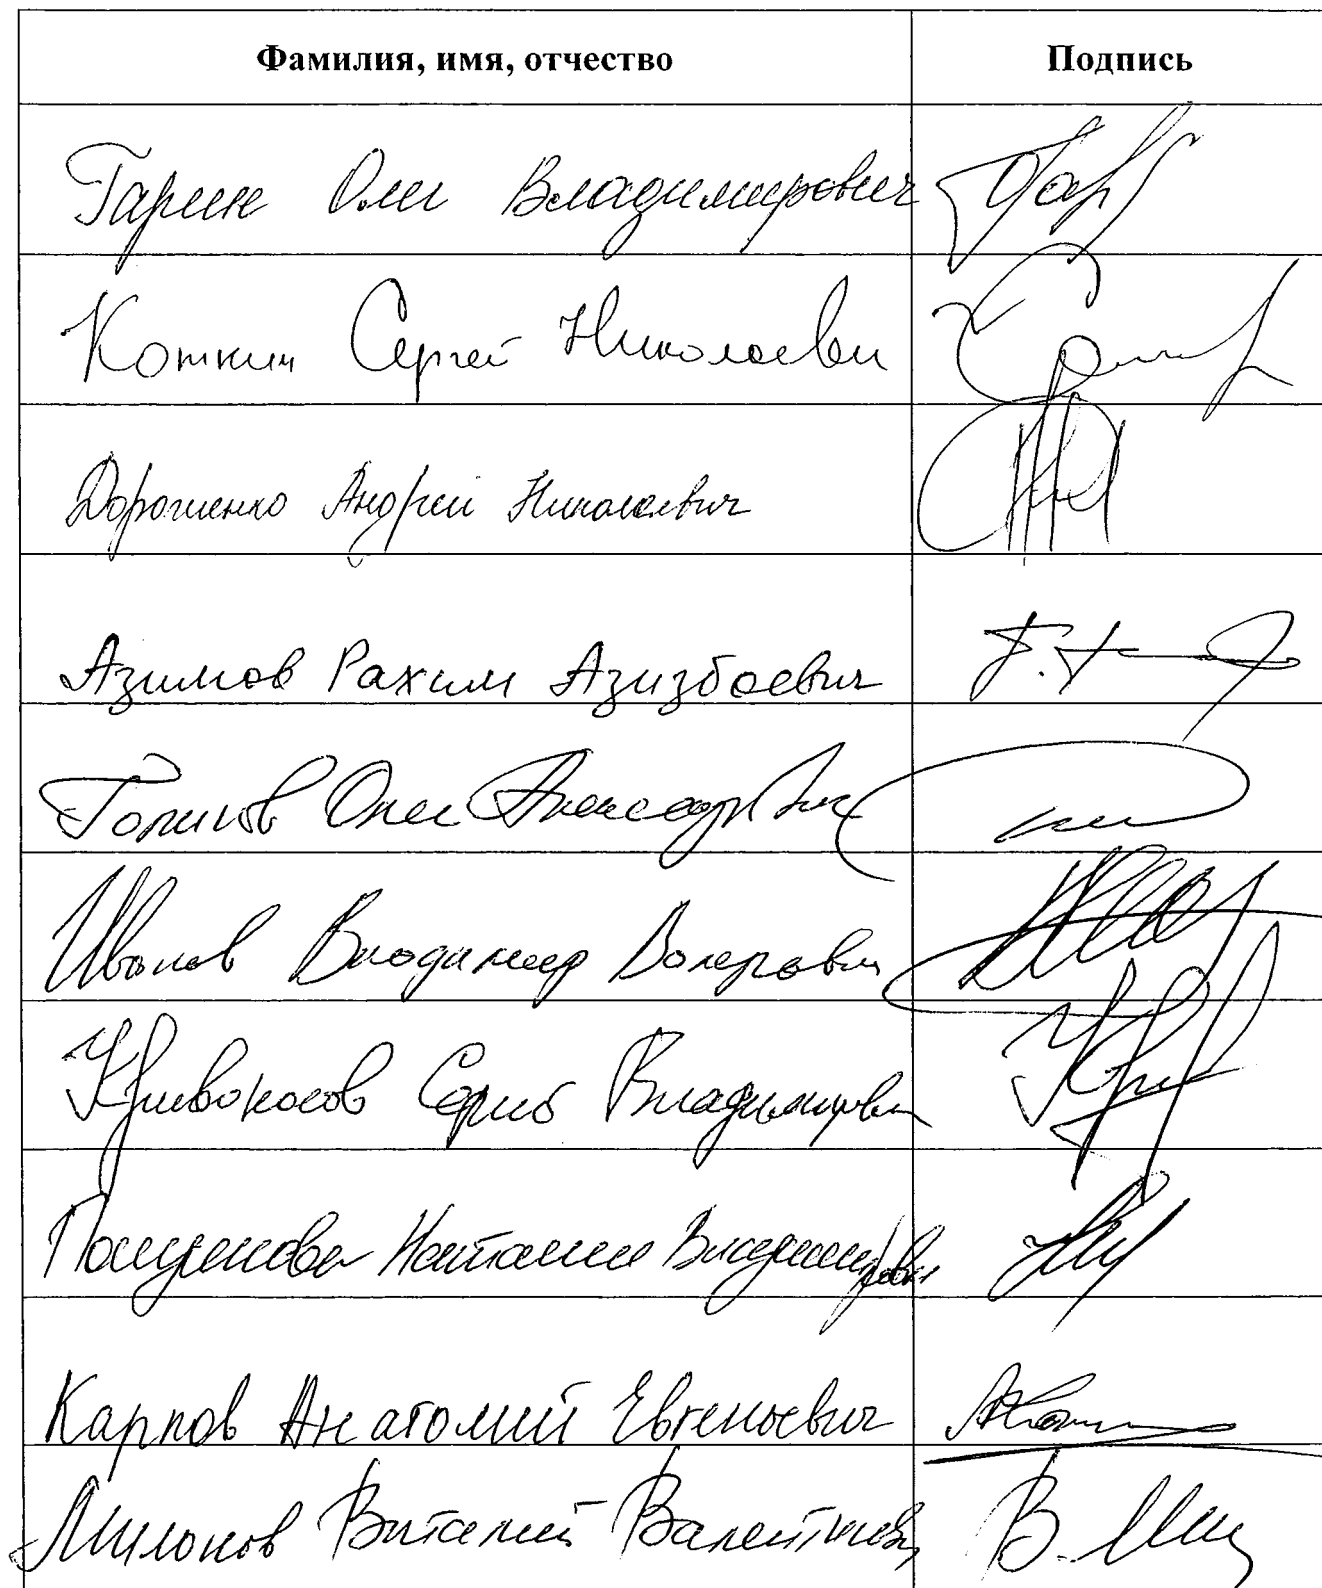 Фамилия, имя, отчество Подпись
Гарин Олег Владимирович
Коткин Сергей Николаевич
Дорошенко Андрей Николаевич
Азимов Рахим Азизбоевич
Голиков Олег Александрович
Иванов Владимир Валерьевич
Кривоносов Сергей Владимирович
Полуянова Наталия Владимировна
Карпов Анатолий Евгеньевич
Милонов Виталий Валентинович В. Мил